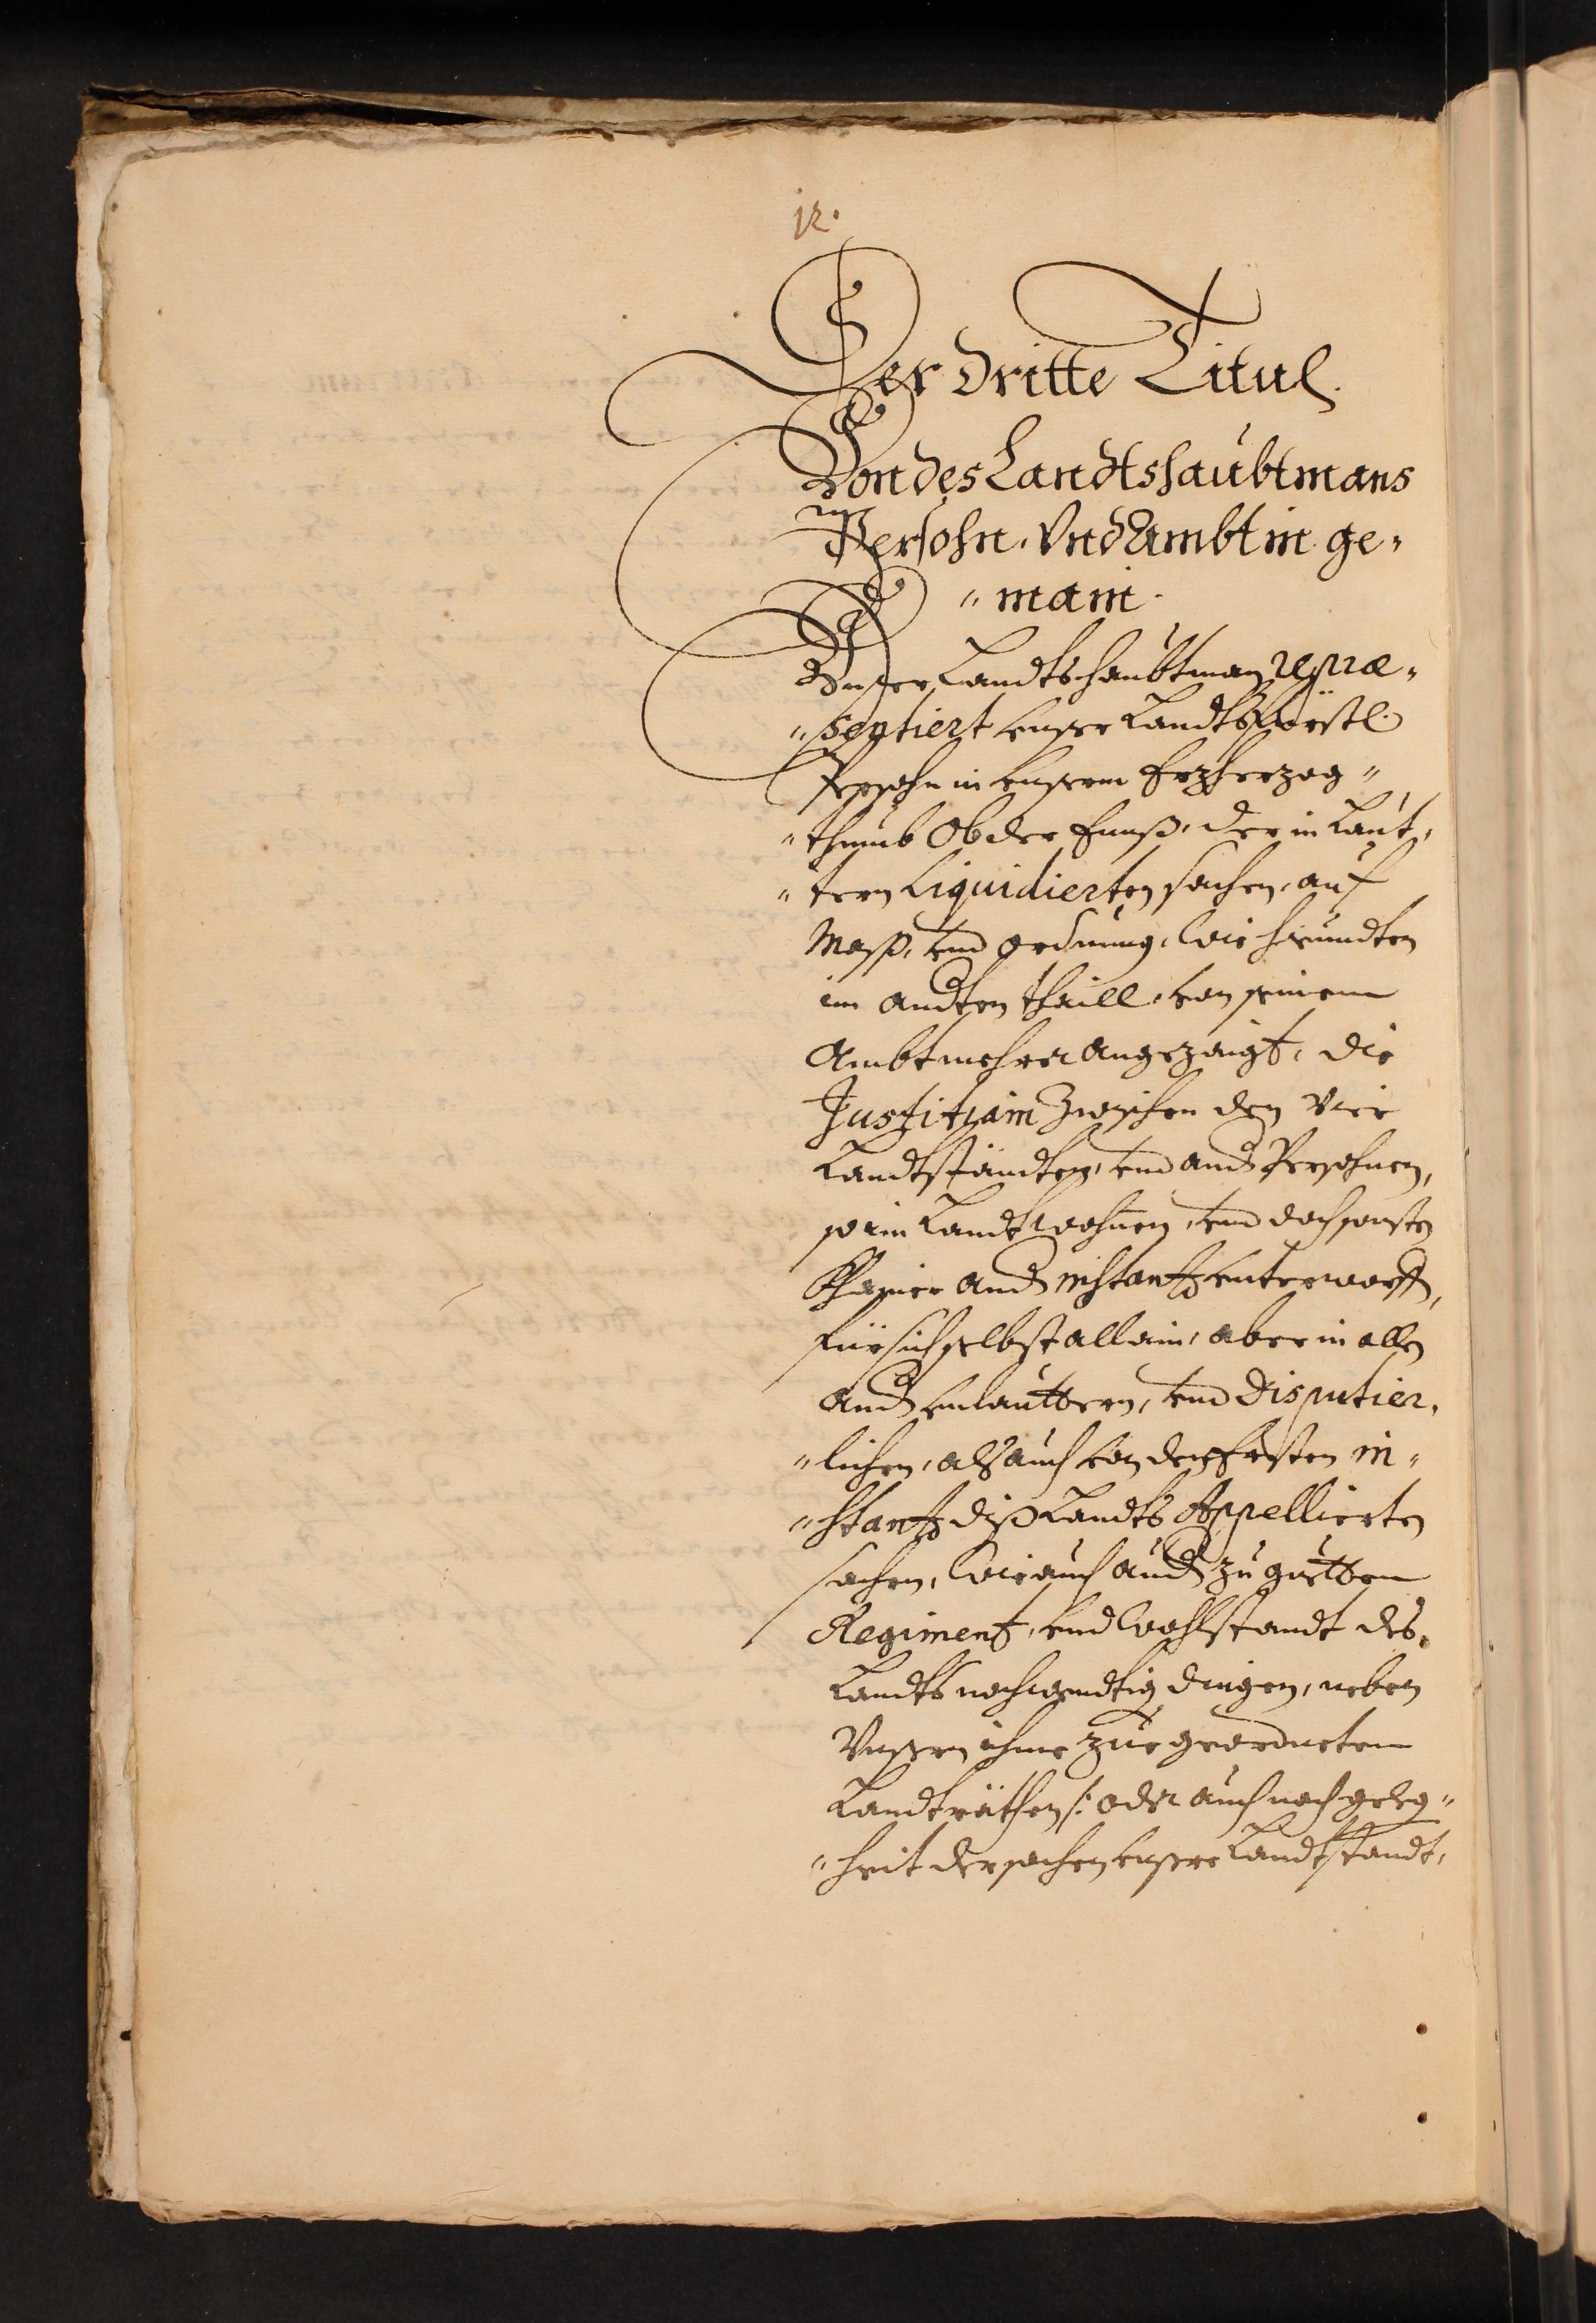 12.
Der dritte Titul.
Von des Landtshaubtmans
Persohn, Vnd Ambt in ge„
„main.
Vnser Landtshaubtman repræ„
„sentiert vnser Landtsfürstl.
Persohn in vnserm Erzherzog„
„thumb Ob der Ennß, der in laut„
„tern Liquidierten sachen, auf
Maß, vnd ordnung, wie hieundten
im andten thaill, von seinem
Ambt mehrer angezaigt, die
Justitiam zwischen den vier
Landtständten, vnd and Persohnen,
so im Landt wohnen, vnd doch sonsten
khainer and instantz vnterworffn,
für sich selbst allain, aber in allen
and vnlauttern, vnd Disputier„
„lichen, alß auch von der Ersten in„
„stantz diß Landts Appellierten
sachen, wie auch and zu guettem
Regiment, vnd wohlstandt des
Landts nothwendtig dingen, neben
Vnsern ihme zue geordneten
Landträthen /: oder auch nach geleg„
„heit der sachen vnsere Landtständt,